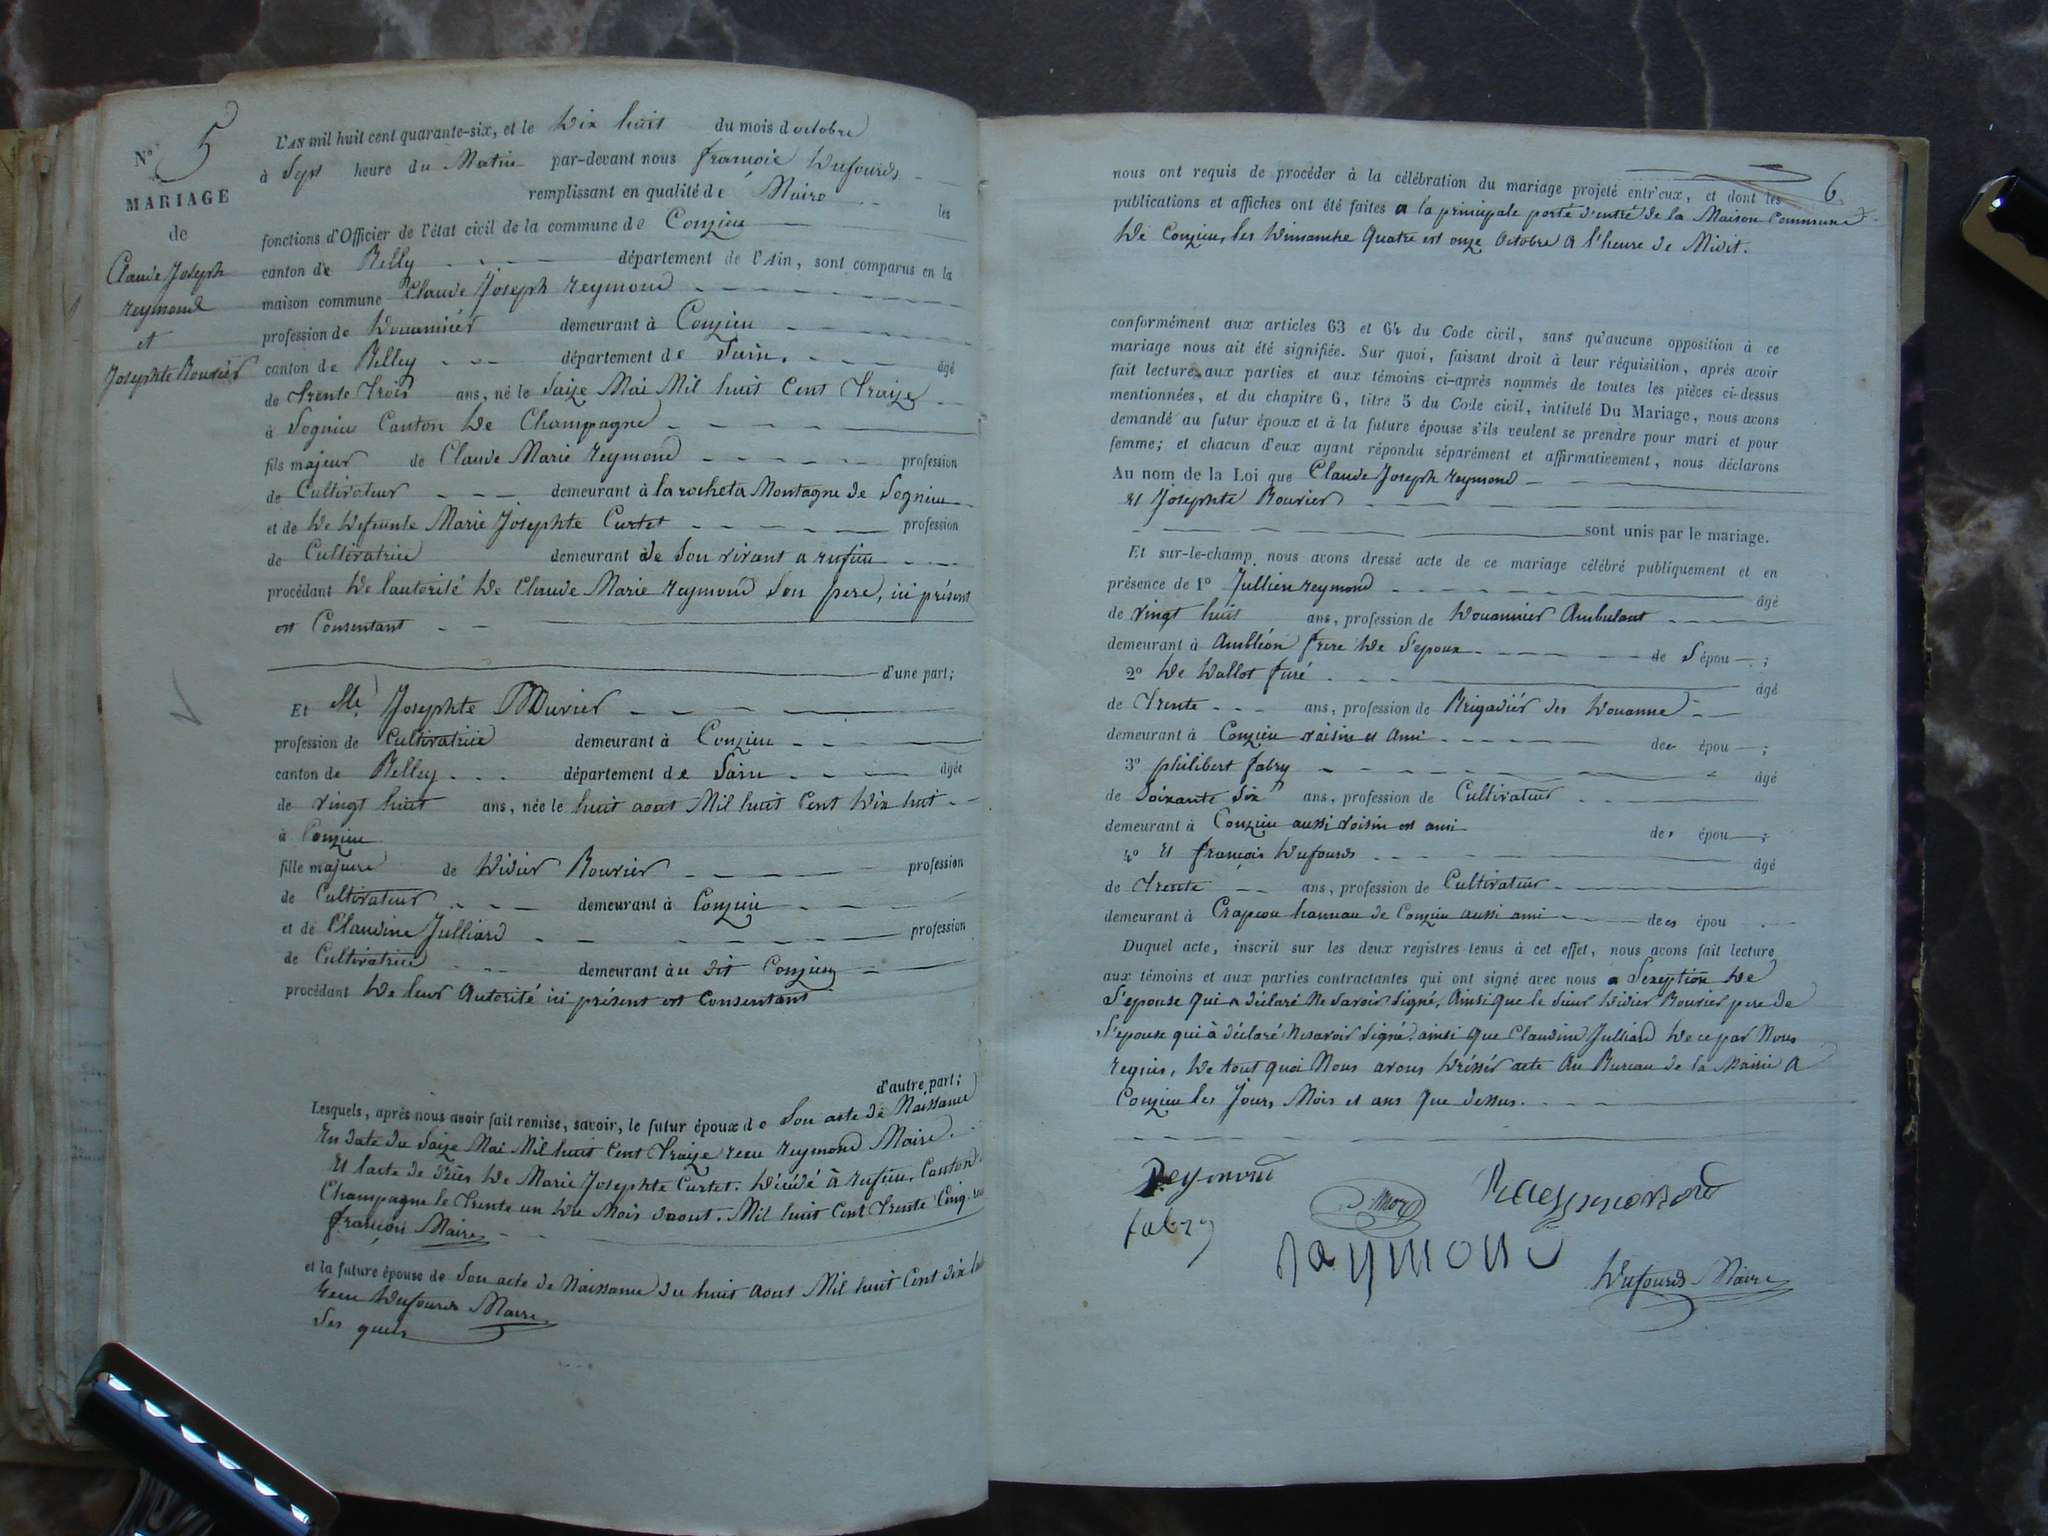 N° 5
MARIAGE
de
Claude Joseph
reymond
et
Josephte Bouvier
L'AN mil huit cent quarante-six, et le Dix huit du mois d'octobre
à Sept heure du Matin par-devant nous françois Dufourds
remplissant en qualité de Maire les
fonctions d'Officier de l'état civil de la commune de Conzieu
canton de Belly département de l'Ain, sont comparus en la
maison commune Claude Joseph reymond
profession de Douannier demeurant à Conzieu
canton de Belley département de Lain, âgé
de Trente Trois ans, né le Saize Mai Mil huit Cent Traize
à Sognieu Canton De Champagne
fils majeur de Claude Marie reymond profession
de Cultivateur demeurant à la rocheta Montagne de Sognieu
et de De Defeunte Marie Josephte Curtet profession
de Cultivatrice demeurant de Son vivant a rufieu
procédant De lautorité De Claude Marie reymond Son pere, ici présent
est Consentant
d'une part;
Et Mlle Josephte Bouvier
profession de Cultivatrice demeurant à Conzieu
canton de Belley département de Lain âgée
de vingt huit ans, née le huit aout Mil huit Cent Dix huit
à Conzieu
fille majeure de Didier Bouvier profession
de Cultivateur demeurant à Conzieu
et de Claudine Julliard profession
de Cultivatrice demeurant àu dit Conzieu
procédant De leur Autorité ici présent est Consentant
d'autre part;
Lesquels, après nous avoir fait remise, savoir, le futur époux de Son acte de Naissance
En date du Saize Mai Mil huit Cent Traize recu reymond Maire.
Et lacte de décès De Marie Josephte Curtet. Décédé à rufieu, Canton
Champagne le Trente un Du Mois daout. Mil huit Cent Trente Cinq. recu
françon Maire
et la future épouse de Son acte de Naissance du huit aout Mil huit Cent dix huit
recu Dufourds Maire
Les quels
6
nous ont requis de procéder à la célébration du mariage projeté entr'eux, et dont les
publications et affiches ont été faites a la principale porte d'entré de la Maison Commune
De Conzieu, les Dimanche Quatre est onze Octobre a l'heure de Midit.
conformément aux articles 63 et 64 du Code civil, sans qu'aucune opposition à ce
mariage nous ait été signifiée. Sur quoi, faisant droit à leur réquisition, après avoir
fait lecture aux parties et aux témoins ci-après nommés de toutes les pièces ci-dessus
mentionnées, et du chapitre 6, titre 5 du Code civil, intitulé Du Mariage, nous avons
demandé au futur époux et à la future épouse s'ils veulent se prendre pour mari et pour
femme; et chacun d'eux ayant répondu séparément et affirmativement, nous déclarons
Au nom de la Loi que Claude Joseph reymond
Et Josephte Bouvier
sont unis par le mariage.
Et sur-le-champ nous avons dressé acte de ce mariage célébré publiquement et en
présence de 1° Jullien reymond âgé
de vingt huit ans, profession de Douannier Ambulant
demeurant à Ambléon frere De L'epoux de L'épou ;
2° De Wallot furé âgé
de Trente ans, profession de Brigadiér des Douanne
demeurant à Conzieu voisin et Ami des épou ;
3° philibert fabry âgé
de Soixante Six ans, profession de Cultivateur
demeurant à Conzieu aussi voisin est ami des épou ;
4° Et françois Dufourds âgé
de Trente ans, profession de Cultivateur
demeurant à Crapeou hameau de Conzieu aussi ami des épou
Duquel acte, inscrit sur les deux registres tenus à cet effet, nous avons fait lecture
aux témoins et aux parties contractantes qui ont signé avec nous a Lexeption De
L'epouse qui a déclaré Ne Savoir Signé, Ainsi que le Sieur Didier Bouvier pere de
L'epouse qui à déclaré Ne savoir Signé. ainsi que Claudine Julliard De ce par Nous
requis, De tout quoi Nous avons Dréssér acte Au Bureau de la Mairie A
Conzieu les Jour, Mois et ans que dessus.
Reymond
Raeymond
fabry
raymond
Dufourds Maire